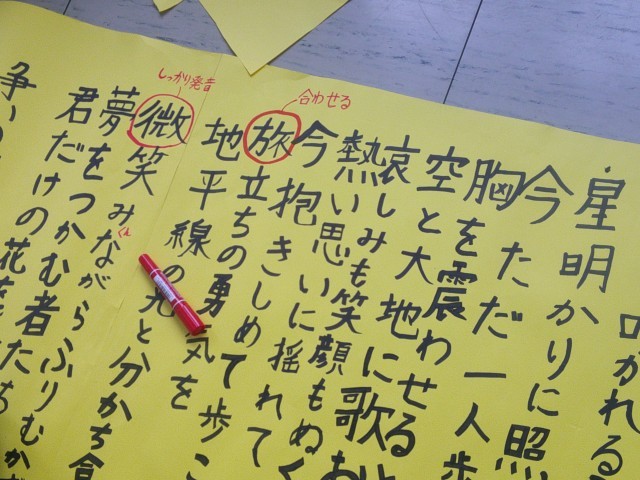 かれる
・星明かりに照
今 ただ一人歩
胸を震わせると
空と大地に歌お
哀しみも笑顔もぬく
熱い思いに揺れて
今抱きしめて歩こ
合わせる
旅立ちの勇気を
地平線の光と分かち合
しっかり発音
微笑みながらふりむかず
夢をつかむ者たち
君だけの花を
争い